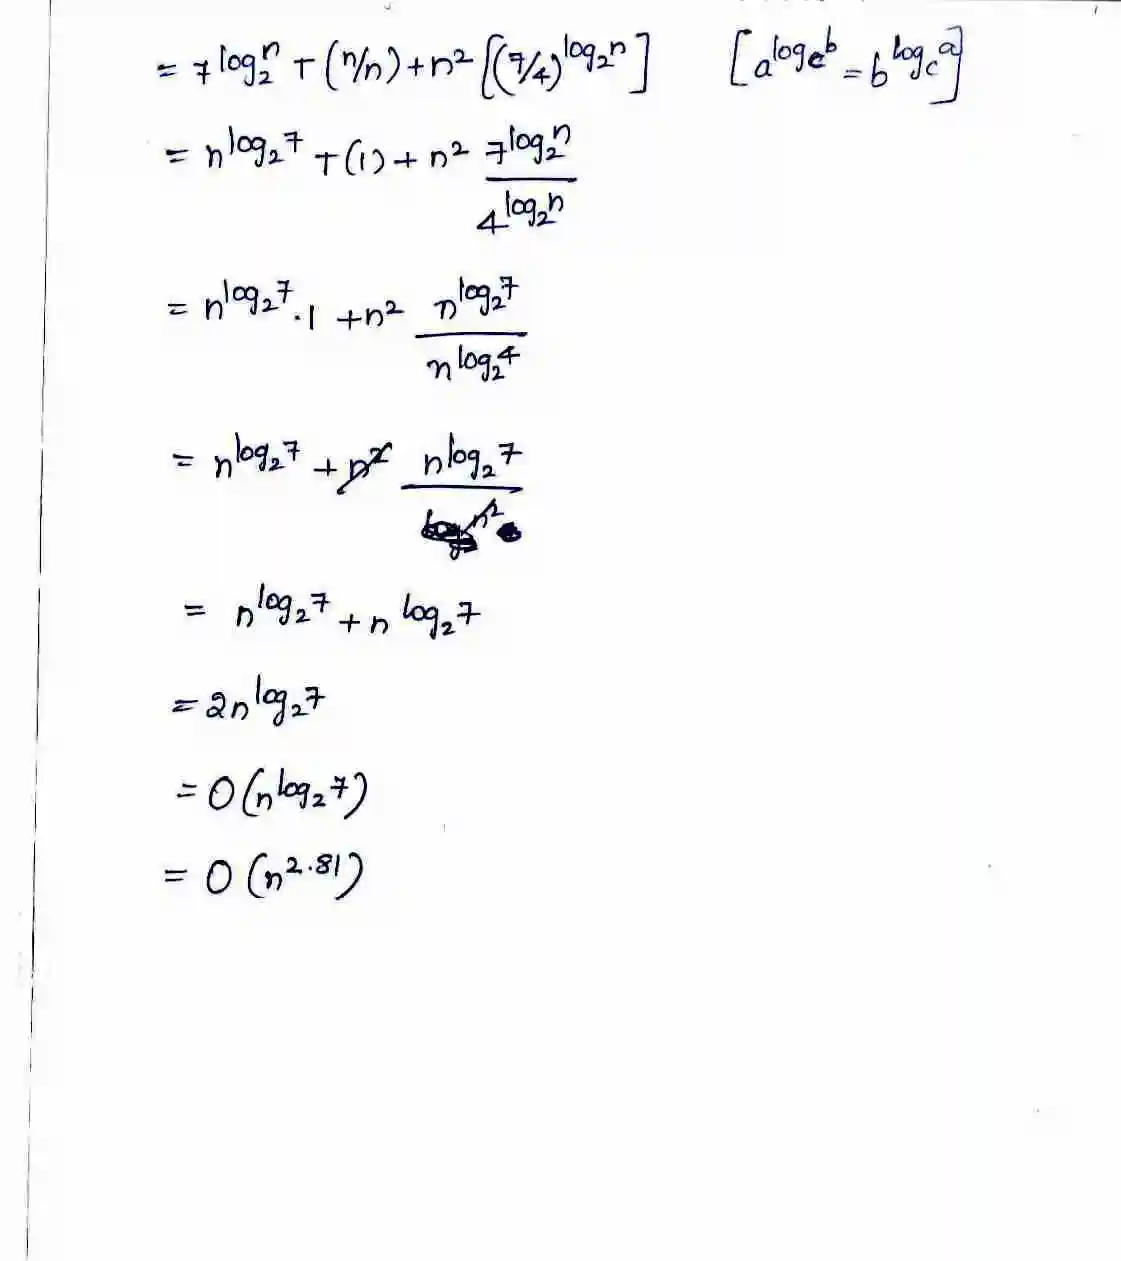 = 7^{log_2 n} T(n/n) + n^2 [(7/4)^{log_2 n}] [a^{log_c b} = b^{log_c a}]
= n^{log_2 7} T(1) + n^2 \frac{7^{log_2 n}}{4^{log_2 n}}
= n^{log_2 7} . 1 + n^2 \frac{n^{log_2 7}}{n^{log_2 4}}
= n^{log_2 7} + n^2 \frac{n^{log_2 7}}{n^2}
= n^{log_2 7} + n^{log_2 7}
= 2n^{log_2 7}
= O(n^{log_2 7})
= O(n^{2.81})